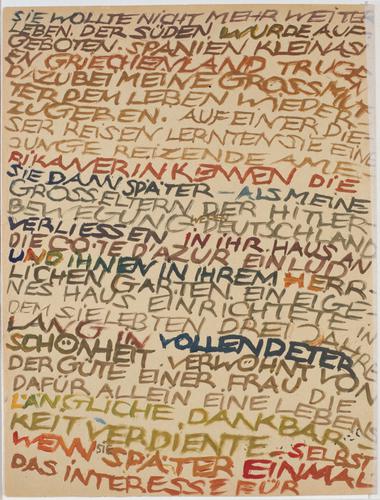 SIE WOLLTE NICHT MEHR WEITER
LEBEN. DER SÜDEN, WURDE AUF
GEBOTEN. SPANIEN KLEINASI
EN GRIECHENLAND TRUGEN
DAZU BEI MEINE GROSSMUT
TER DEM LEBEN WIEDER
ZUZUFÜHREN. AUF EINER DIE
SER REISEN LERNTEN SIE EINE
JUNGE REIZENDE AME
RIKANERIN KENNEN DIE
SIE DANN SPÄTER – ALS MEINE
GROSSELTERN DER HITLER
BEWEGUNG WEGEN DEUTSCHLAND
VERLIESSEN IN IHR HAUS AN
DIE CÔTE D'AZUR EINLUD
UND IHNEN IN IHREM HERR
LICHEN GARTEN EIN EIGE
NES HAUS EINRICHTETE IN
DEM SIE LEBTEN DREI JAHRE
LANG IN VOLLENDETER
SCHÖNHEIT VERWÖHNT VON
DER GÜTE EINER FRAU DIE
DAFÜR ALLEIN EINE LEBENS
LÄNGLICHE DANKBAR
KEIT VERDIENTE. – SELBST
WENN SIE SPÄTER EINMAL
DAS INTERESSE FÜR